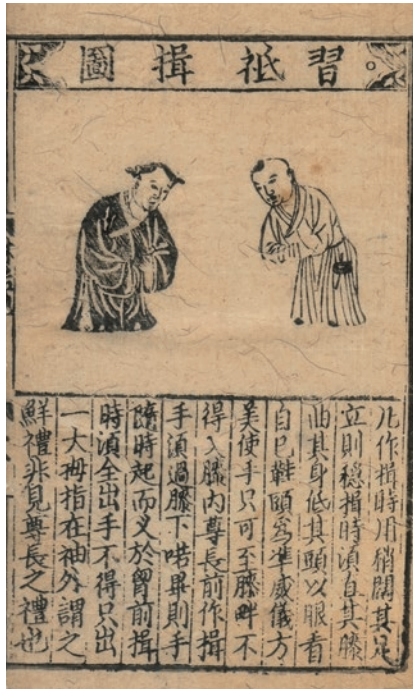 習祗揖圖
凡作揖時用稍闊其足
立則穩揖時須直其膝
曲其身低其頭以眼看
自已鞋頭爲準威儀方
美使手只可至膝畔不
得入膝內尊長前作揖
手須過膝下喏畢則手
隨時起而叉於胷前揖
時須全出手不得只出
一大拇指在袖外謂之
鮮禮非見尊長之禮也